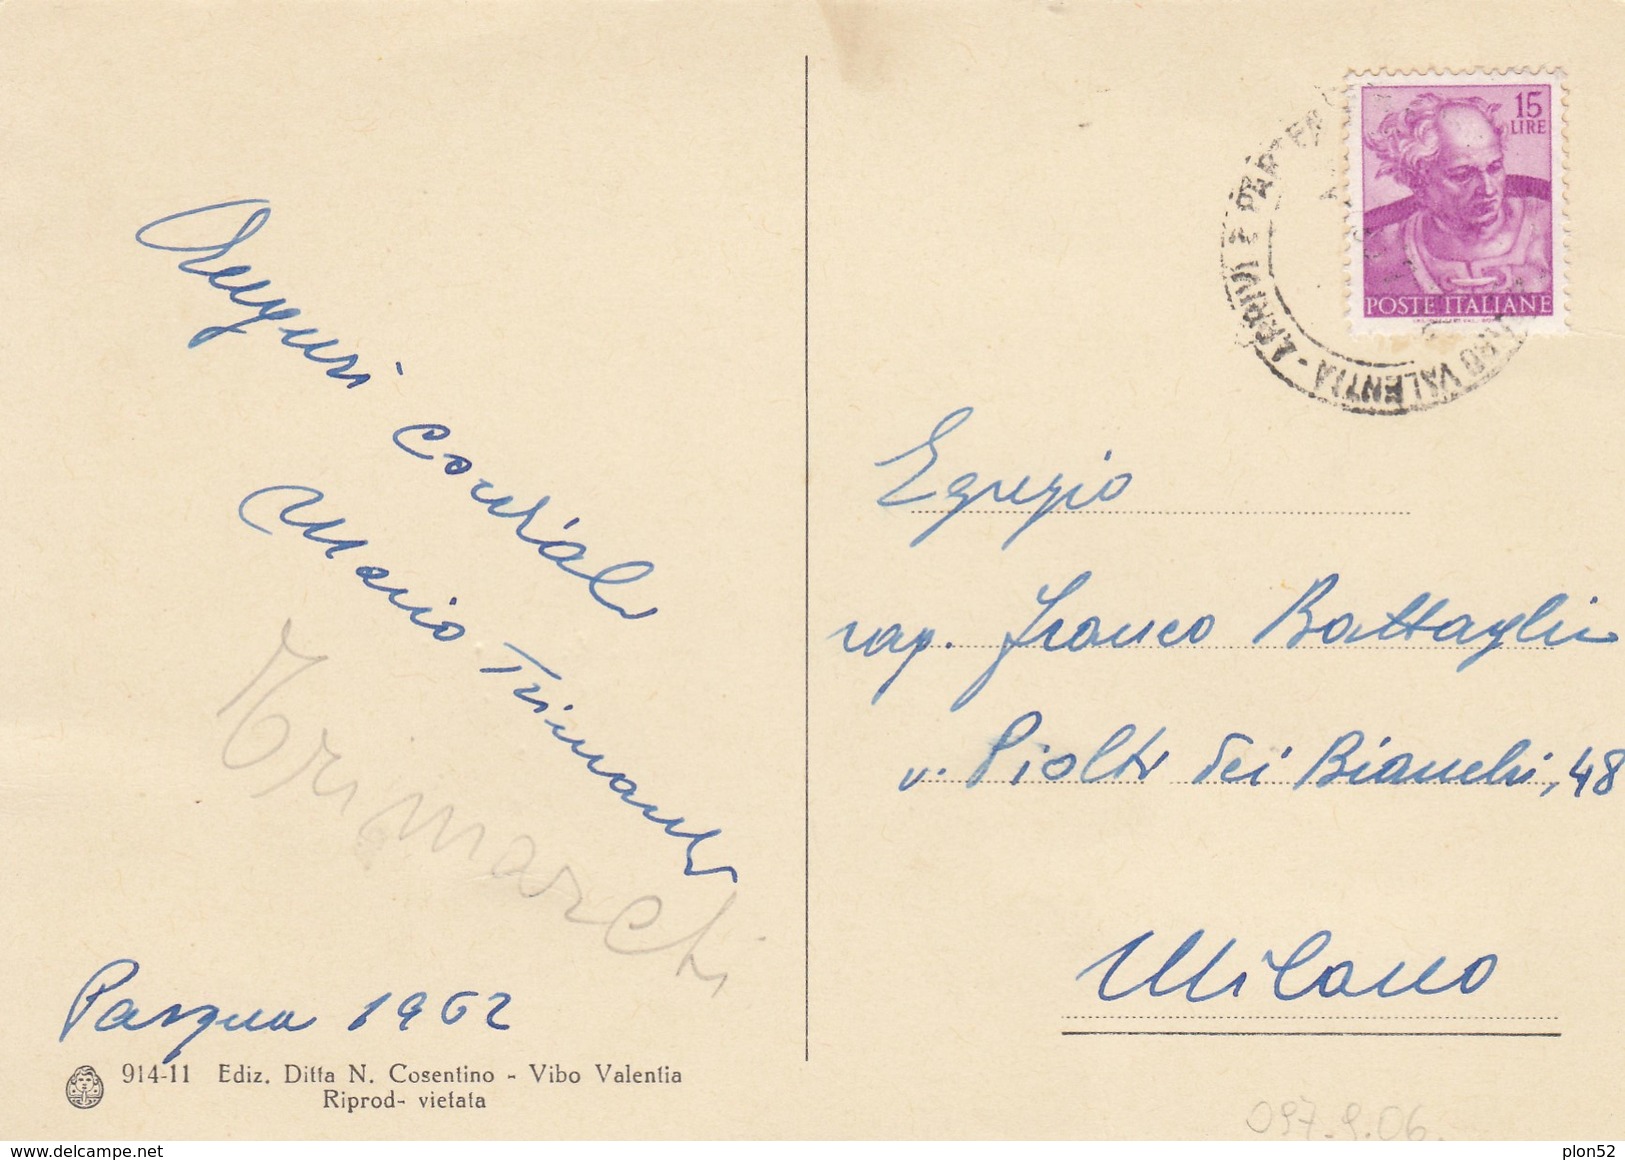 Auguri cordiali
Mario Trimarchi
Trimarchi
Pasqua 1962
914-11 Ediz. Ditta N. Cosentino - Vibo Valentia
Riprod- vietata
15
LIRE
POSTE ITALIANE
VALENTIA - ARRIVI E PARTEN
Egregio
rag. Franco Battaglia
v. Piolti dei Bianchi, 48
Milano
097-9.06.
plon52